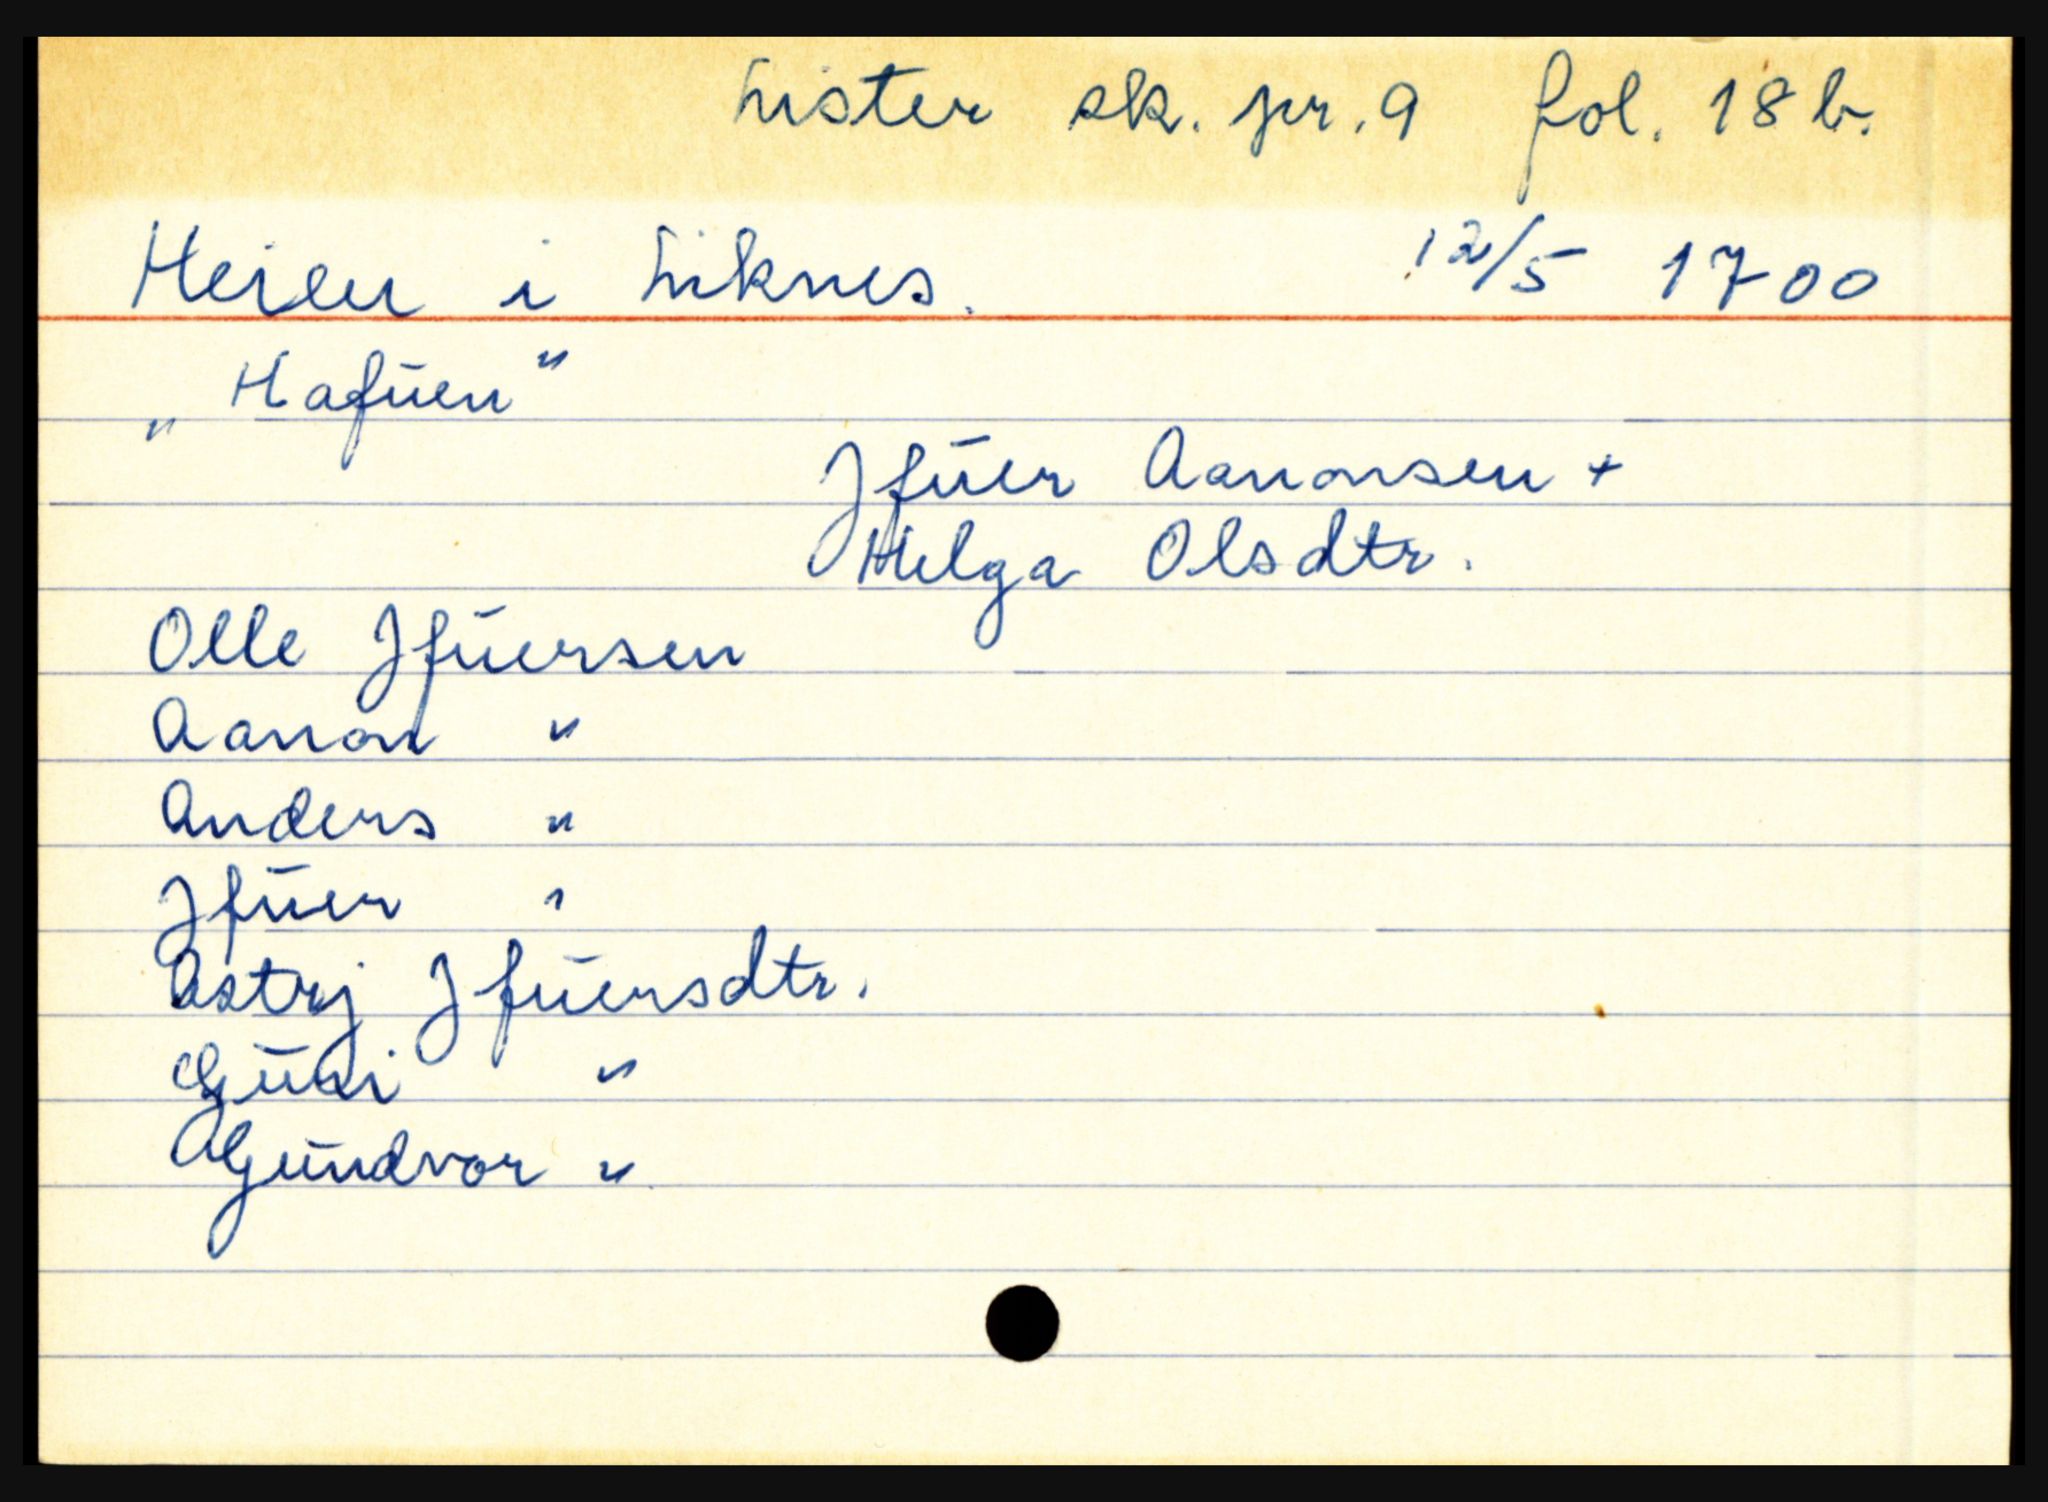 Lister sk. pr. 9 fol. 18 b.
Heien i Liknes. 12/5 1700
„Hafuen"
Jfuer Aanonsen +
Helga Olsdtr.
Olle Jfuersen
Aanon "
Anders "
Jfuer "
Astrj Jfuersdtr.
Guri "
Gundvor "